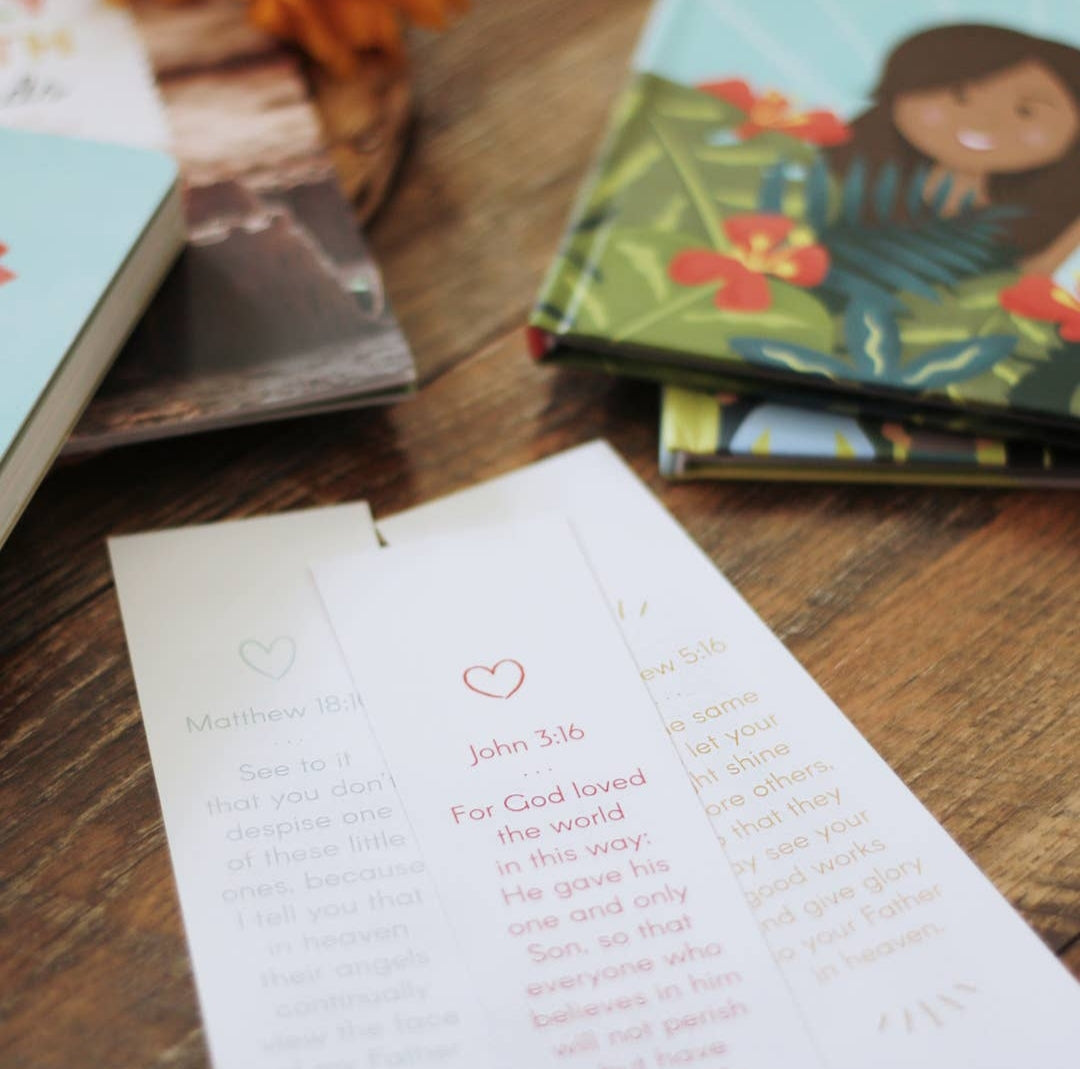 TH
Matthew 18:1
...
See to it
that you don't
despise one
of these little
ones, because
I tell you that
in heaven
their angels
continually
view the face
Father
John 3:16
...
For God loved
the world
in this way:
He gave his
one and only
Son, so that
everyone who
believes in him
will not perish
but have
ew 5:16
...
e same
let your
ht shine
ore others,
that they
ay see your
good works
nd give glory
o your Father
in heaven.